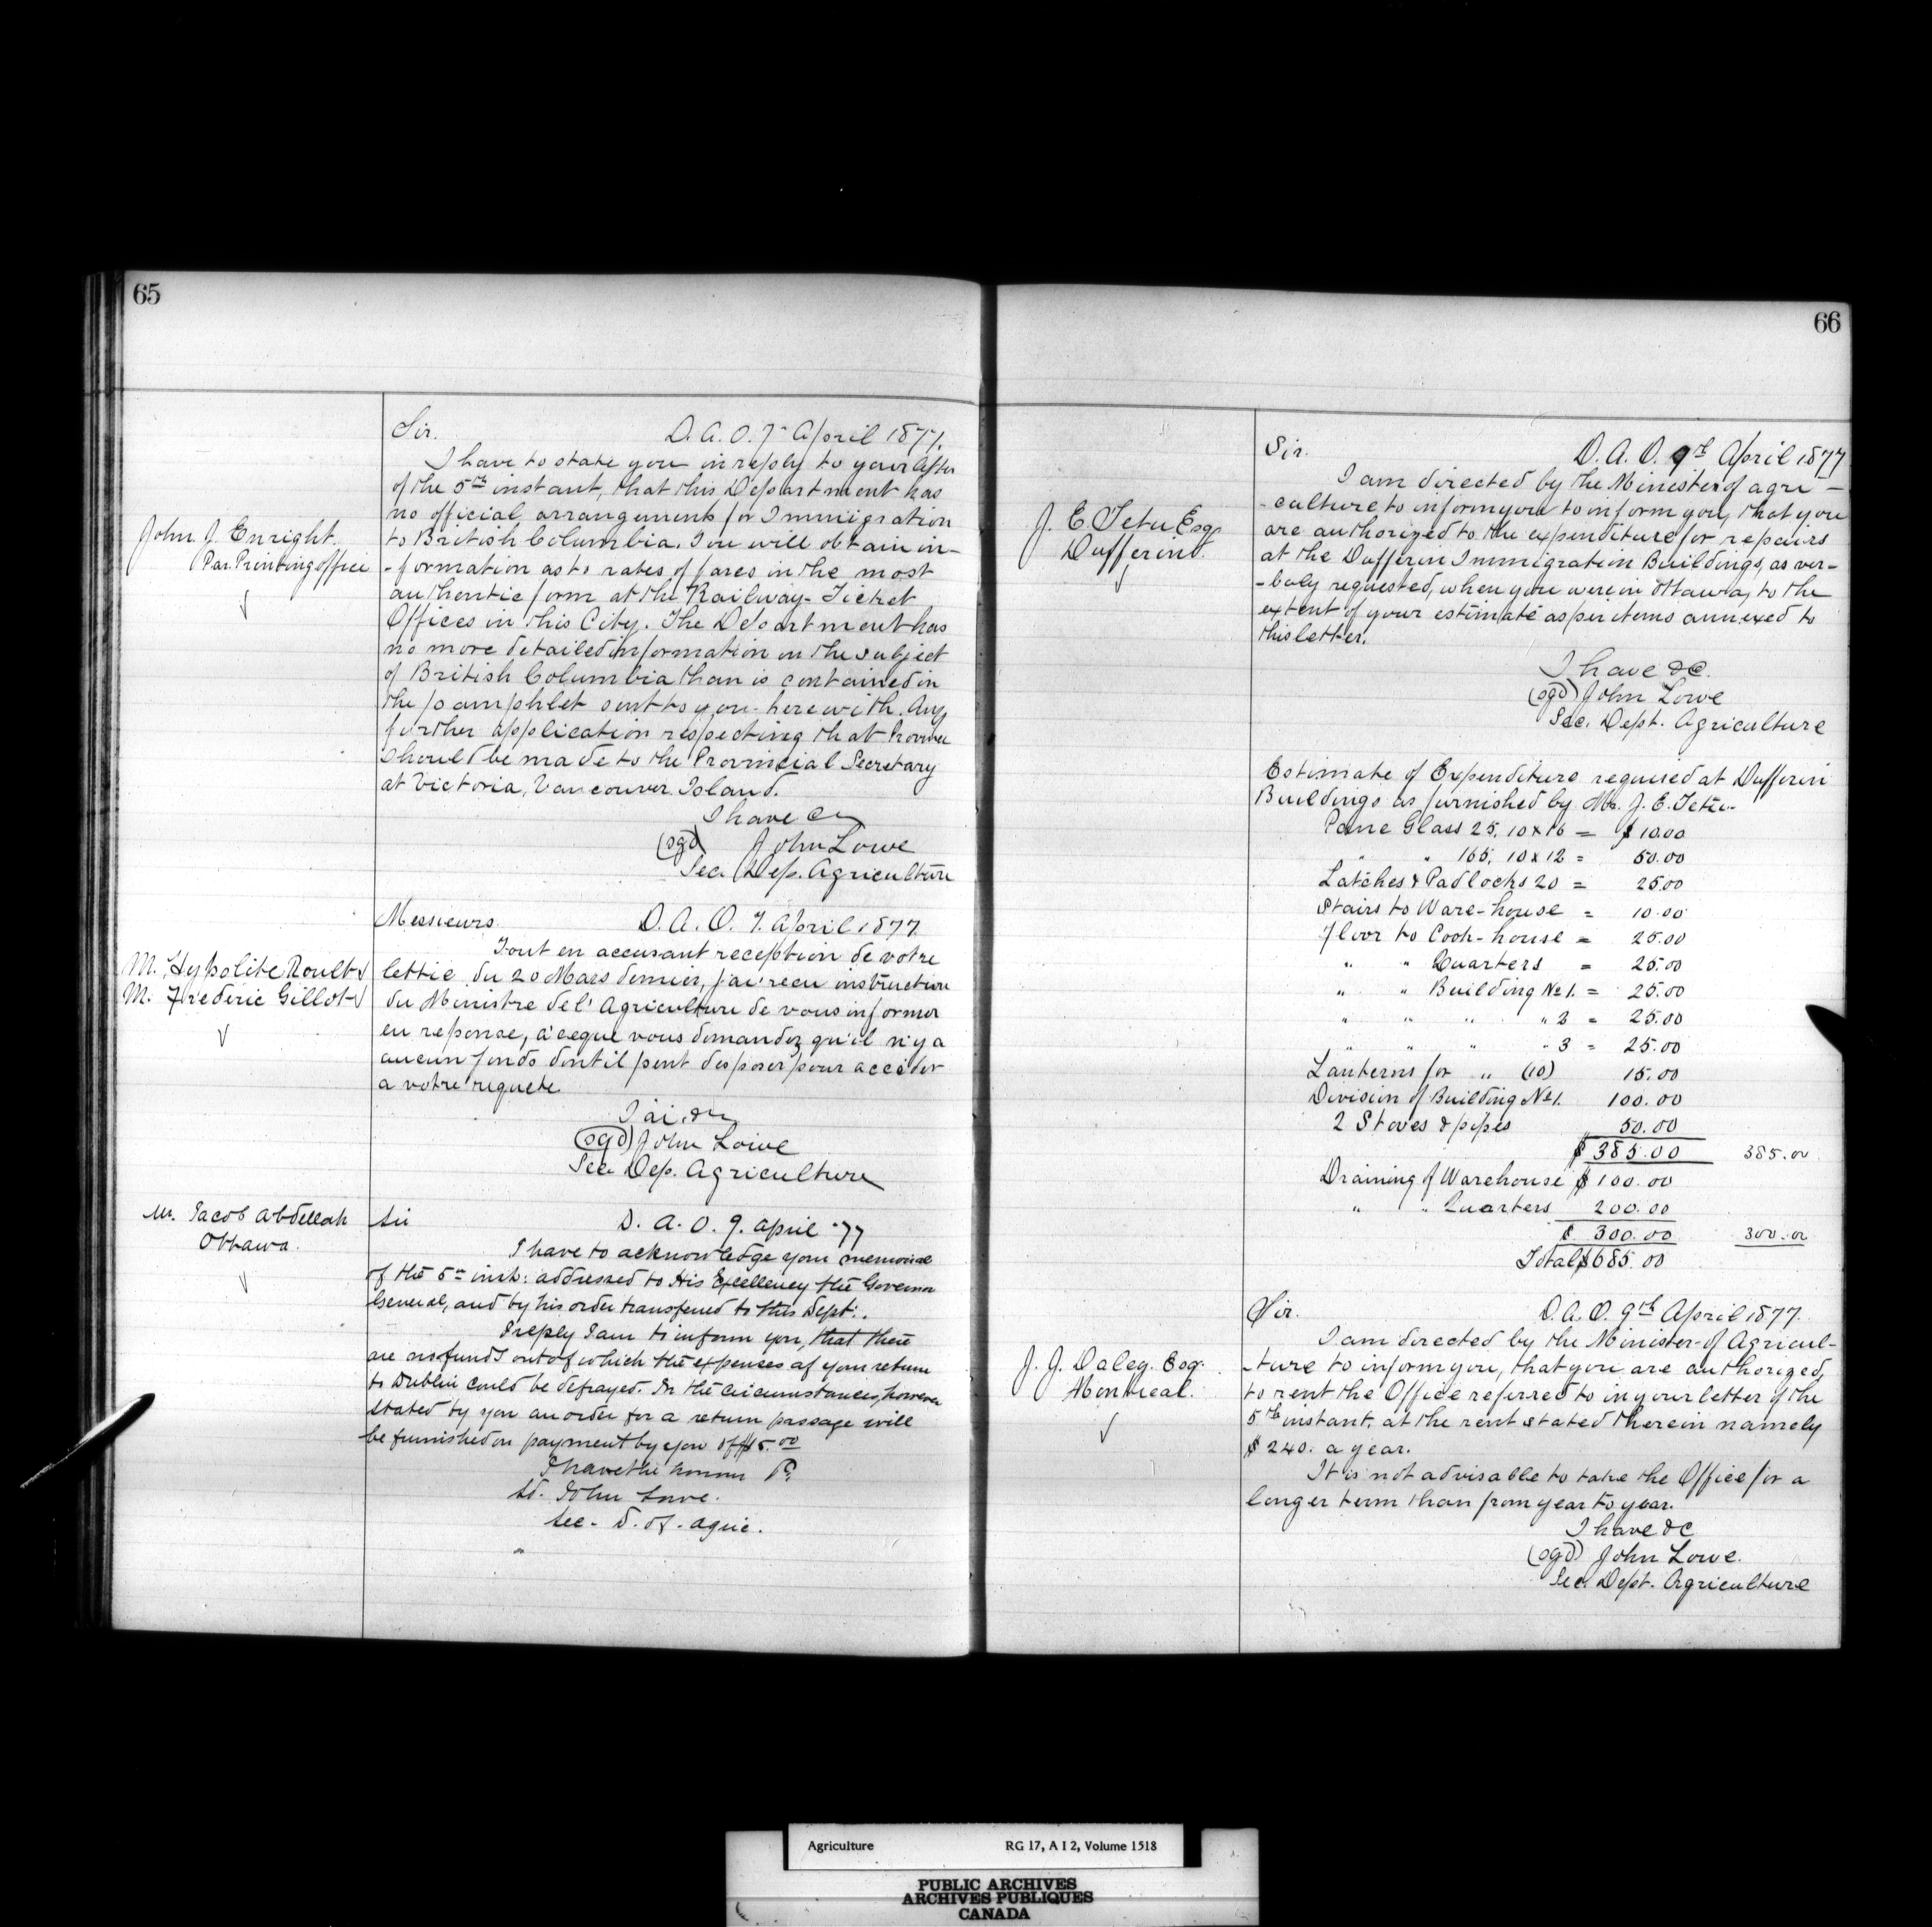 65
Sir. D. A. O. 7 April 1877.
John J. Enright.
Par. Printing office
I have to state you in reply to your letter
of the 5th instant, that this Department has
no official arrangements for Immigration
to British Columbia. You will obtain in-
-formation as to rates of fares in the most
authentic form at the Railway Ticket
Offices in this City. The Department has
no more detailed information on the subject
of British Columbia than is contained in
the pamphlet sent to you herewith. Any
further application respecting that Province
should be made to the Provincial Secretary
at Victoria, Vancouver Island.
I have &c
(sgd) John Lowe
Sec. Dep. Agriculture
Messieurs. D. A. O. 7. April 1877
M. Hypolite Roult
M. Frederic Gillot
Tout en accusant reception de votre
lettre du 20 Mars dernier, j'ai recu instruction
du Ministre de l'Agriculture de vous informer
en reponse, a ceque vous demandez qu'il n'y a
aucun fonds dont il peut disposer pour acceder
a votre requete
J'ai &c
(sgd) John Lowe
Sec. Dep. Agriculture
Mr. Jacob Abdellah
Ottawa.
Sir D. A. O. 9. April '77
I have to acknowledge your memorial
of the 5th inst: addressed to His Excellency the Governor
General, and by his order transferred to this Dept:.
I reply I am to inform you, that there
are no funds out of which the expenses of your return
to Dublin could be defrayed. In the circumstances, however
stated by you an order for a return passage will
be furnished on payment by you of $15.00
I have the honour &c
sd. John Lowe.
Sec. D. of. Agric.
66
Sir. D. A. O. 9th April 1877
J. E. Tetu Esq
Dufferin.
I am directed by the Minister of agri-
-culture, to inform you to inform you, that you
are authorized to the expenditure for repairs
at the Dufferin Immigration Buildings, as ver-
-baly requested, when you were in Ottawa, to the
extent of your estimate as per items annexed to
this letter.
I have &c.
(sgd) John Lowe
Sec. Dept. Agriculture
Estimate of Expenditure required at Dufferin
Buildings as furnished by Mr. J. E. Tetu.
Pane Glass 25, 10x16 = $10.00
" " 165, 10x12 = 50.00
Latches & Padlocks 20 = 25.00
Stairs to Ware-house = 10.00
Floor to Cook-house = 25.00
" " Quarters = 25.00
" " Building No 1. = 25.00
" " " " 2 = 25.00
" " " " 3 = 25.00
Lanterns for " (10) 15.00
Division of Building No 1. 100.00
2 Stoves & pipes 50.00
$ 385.00 385.00
Draining of Warehouse $ 100.00
" " Quarters 200.00
$ 300.00 300.00
Total $685.00
Sir. D. A. O. 9th April 1877.
J. J. Daley. Esq.
Montreal.
I am directed by the Minister of Agricul-
-ture to inform you, that you are authorized,
to rent the Office referred to in your letter of the
5th instant, at the rent stated therein namely
$ 240. a year.
It is not advisable to take the Office for a
longer term than from year to year.
I have &c
(sgd) John Lowe.
Sec. Dept. Agriculture
Agriculture RG 17, A I 2, Volume 1518
PUBLIC ARCHIVES
ARCHIVES PUBLIQUES
CANADA